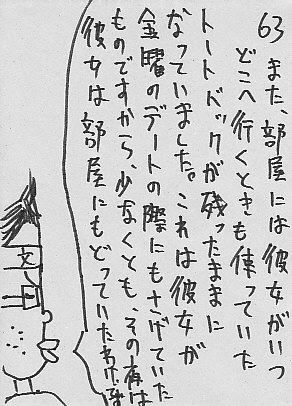 63 また、部屋には彼女がいつ
どこへ行くときも使っていた
トートバックが残ったままに
なっていました。これは彼女が
金曜のデートの際にもさげていた
ものですから、少なくとも、その夜は
彼女は部屋にもどっていたわけです